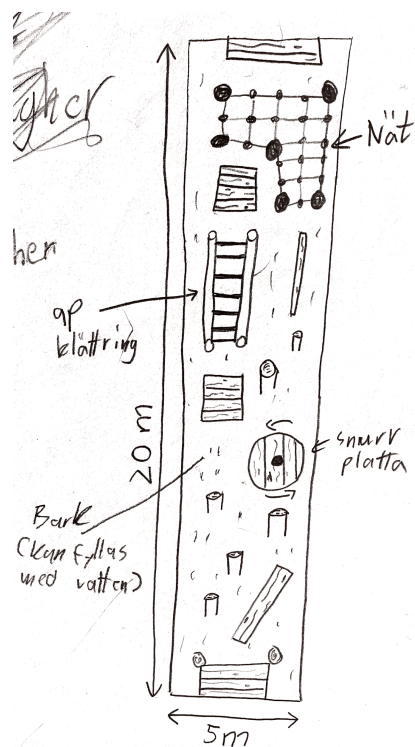 Nät
ap
klättring
20 m
snurr
platta
Bark
(kan fyllas
med vatten)
5m